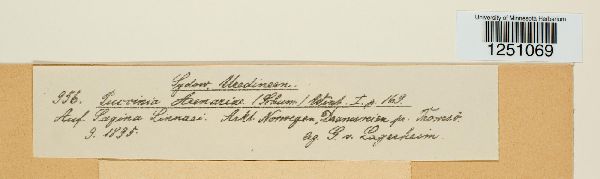 University of Minnesota Herbarium
1251069
Sydow, Uredineen.
956. Puccinia Arenariae (Schum.) Wint. I. p. 169.
Auf Sagina Linnaei. Arkt. Norwegen, pr. Tromsö.
9. 1895. lg. G. v. Lagerheim.